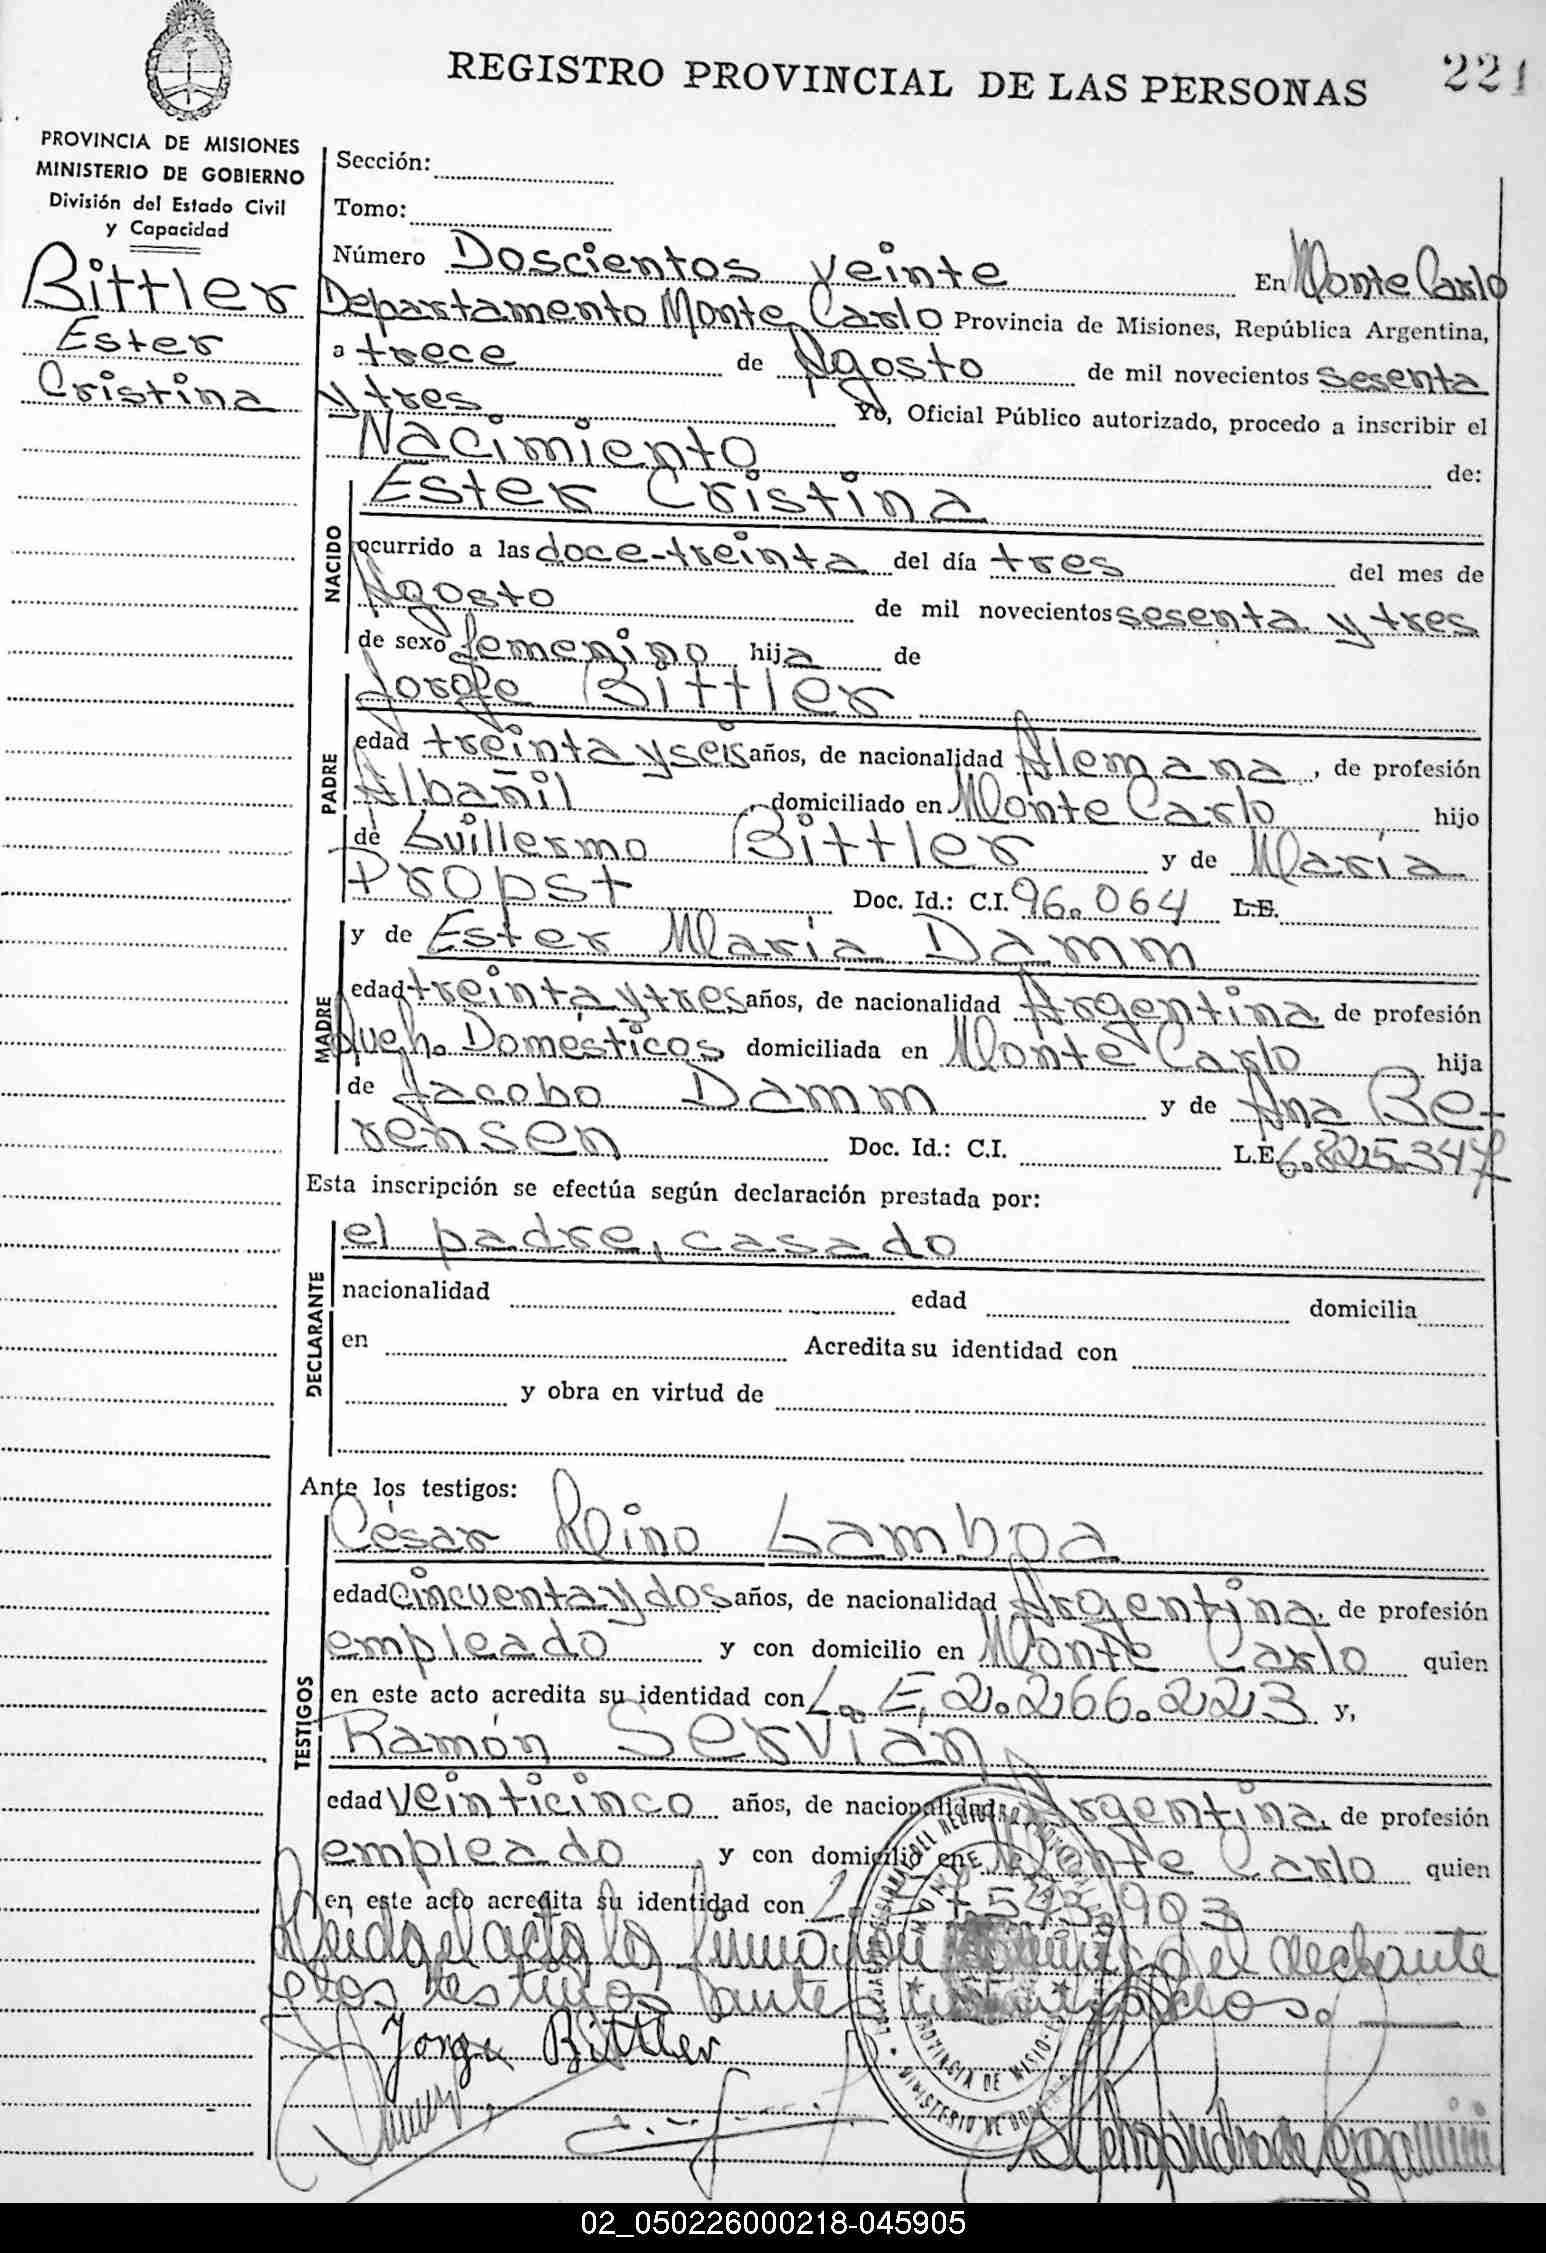 REGISTRO PROVINCIAL DE LAS PERSONAS
221
PROVINCIA DE MISIONES
MINISTERIO DE GOBIERNO
División del Estado Civil
y Capacidad
Bittler
Ester
Cristina
Sección:
Tomo:
Número Doscientos veinte En Monte Carlo
Departamento Monte Carlo Provincia de Misiones, República Argentina,
a trece de Agosto de mil novecientos sesenta
y tres Yo, Oficial Público autorizado, procedo a inscribir el
Nacimiento de:
NACIDO
Ester Cristina
ocurrido a las doce-treinta del día tres del mes de
Agosto de mil novecientos sesenta y tres
de sexo femenino hija de
PADRE
Jorge Bittler
edad treinta y seis años, de nacionalidad Alemana, de profesión
Albañil, domiciliado en Monte Carlo hijo
de Guillermo Bittler y de María
Propst Doc. Id.: C.I. 96.064 L.E.
MADRE
y de Ester María Damm
edad treinta y tres años, de nacionalidad Argentina, de profesión
Queh. Domésticos domiciliada en Monte Carlo hija
de Jacobo Damm y de Ana Be-
rensen Doc. Id.: C.I. L.E. 6.825.347
Esta inscripción se efectúa según declaración prestada por:
DECLARANTE
el padre, casado
nacionalidad edad domicilia
en Acredita su identidad con
y obra en virtud de
Ante los testigos:
TESTIGOS
César Lamboa
edad cincuenta y dos años, de nacionalidad Argentina, de profesión
empleado y con domicilio en Monte Carlo quien
en este acto acredita su identidad con L.E. 2.266.223 y,
Ramón Servián
edad veinticinco años, de nacionalidad Argentina, de profesión
empleado, y con domicilio en Monte Carlo quien
en este acto acredita su identidad con L.E. 7.543.903
Leída el acta la el declarante
y los testigos
Jorge Bittler
PROVINCIA DE MISIONES
MINISTERIO DE
02_050226000218-045905